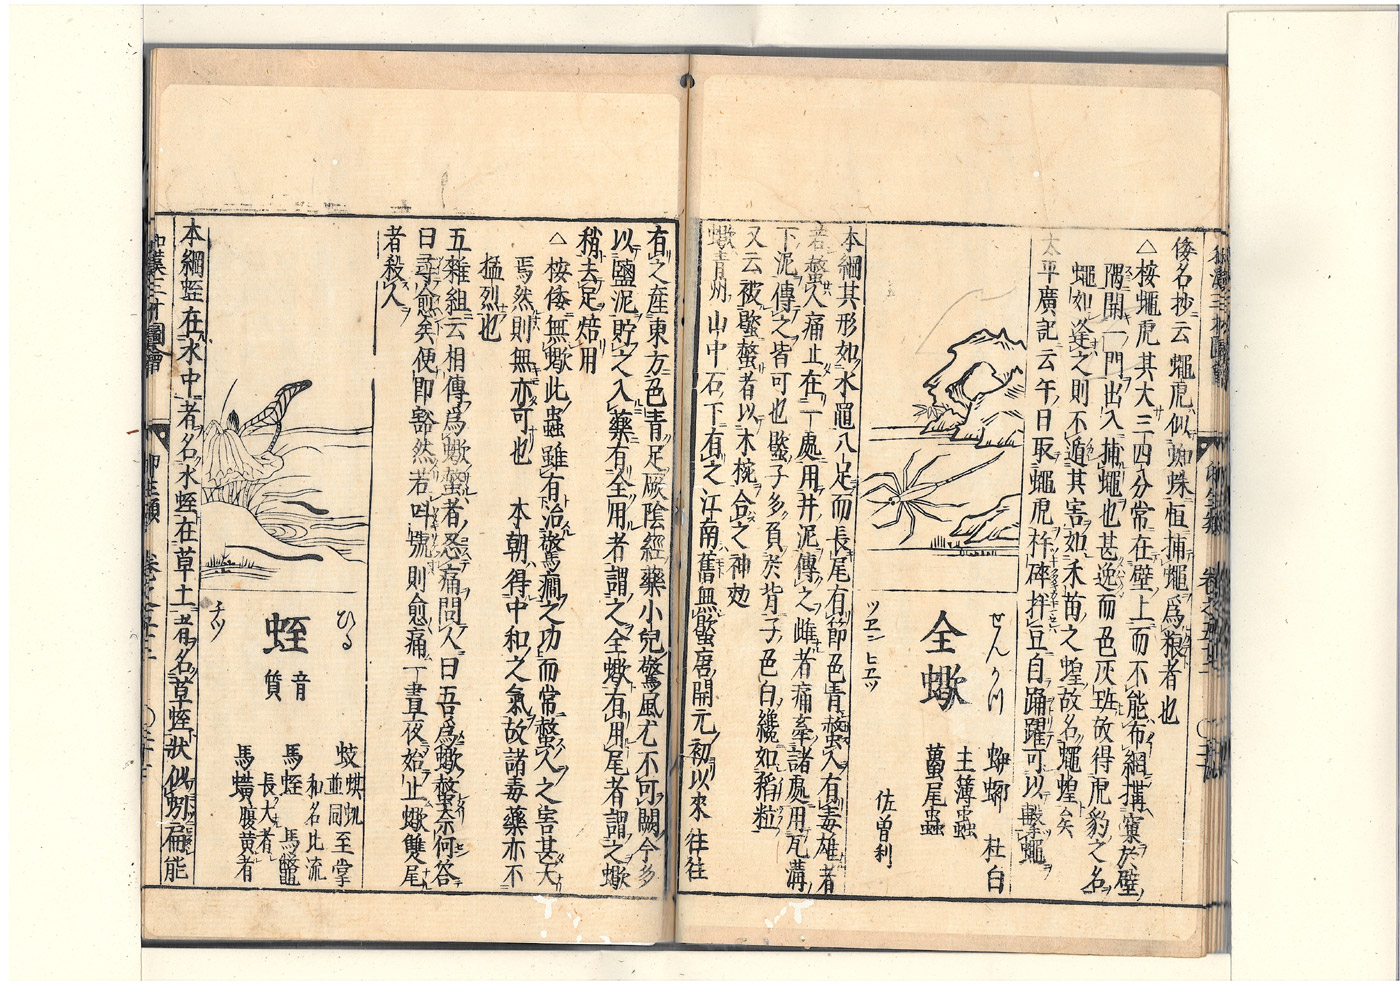 倭名抄云蠅虎似蜘蛛恒捕蠅爲粮者也
△桉蠅虎其大三四分常在壁上而不能布網搆窠於壁
隅開一門出入捕蠅也甚逸而色灰班故得虎豹之名
蠅如逢之則不遁其害如禾苗之蝗故名蠅蝗矣
太平廣記云午日取蠅虎杵碎拌豆自踊躍可以擊蠅
全蠍
せんかつ
ツヱン ヒヱツ
蛜𧍪 杜白
主簿蟲
蠆尾蟲
佐曽利
本綱其形如水黽八足而長尾有節色青螫人有毒雄者
若螫人痛止在一處用井泥傳之雌者痛牽諸處用瓦溝
下泥傳之皆可也 子多負於背子色白纔如稻粒
又云被 螫者以木椀合之神効
蠍青州山中石下有之江南舊無 唐開元初以來往往
有之産東方色青足厥陰經藥小兒驚風尤不可闕今多
以鹽泥貯之入藥有全用者謂之全蠍有用尾者謂之蠍
稍去足焙用
△桉倭無蠍此蟲雖有治驚癇之功而常螫人之害甚大
焉然則無亦可也 本朝得中和之氣故諸毒藥亦不
猛烈也
五雜組云相傳爲蠍螫者忍痛問人曰吾爲蠍螫奈何答
曰尋愈矣便即豁然若叫號則愈痛一晝夜始止蠍雙尾
者殺人
蛭
音質
ひる
チツ
蚑 蜞 並同 至掌
和名比流
馬蛭 馬鼈
長大者
馬蟥 腹黄者
本綱蛭在水中者名水蛭在草土者名草蛭狀似蚓扁能
和漢三才圖會 卵生類 卷之五十二